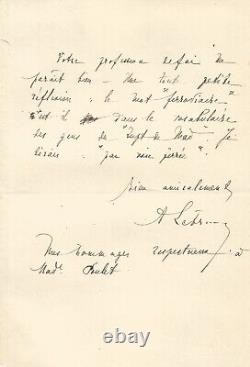 Votre profession de foi me
paraît bon — Une tout petite
réflexion : le mot "ferroviaire"
est il dans le vocabulaire
des gens du "Rupt de Mad" — Je
dirais : "par voie ferrée".
bien amicalement
A Lebrun
Mes hommages respectueux à
Mad.